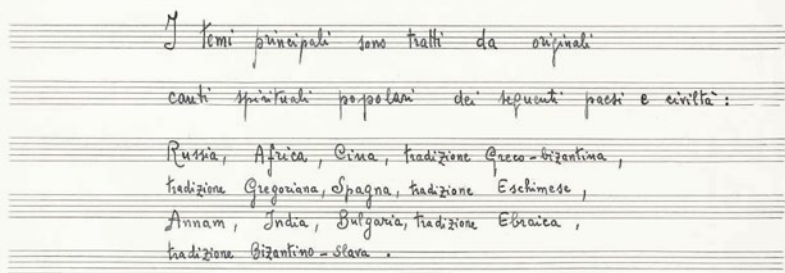 I temi principali sono tratti da originali
canti spirituali popolari dei seguenti paesi e civiltà :
Russia, Africa, Cina, tradizione Greco-bizantina,
tradizione Gregoriana, Spagna, tradizione Eschimese,
Annam, India, Bulgaria, tradizione Ebraica,
tradizione Bizantino-slava.